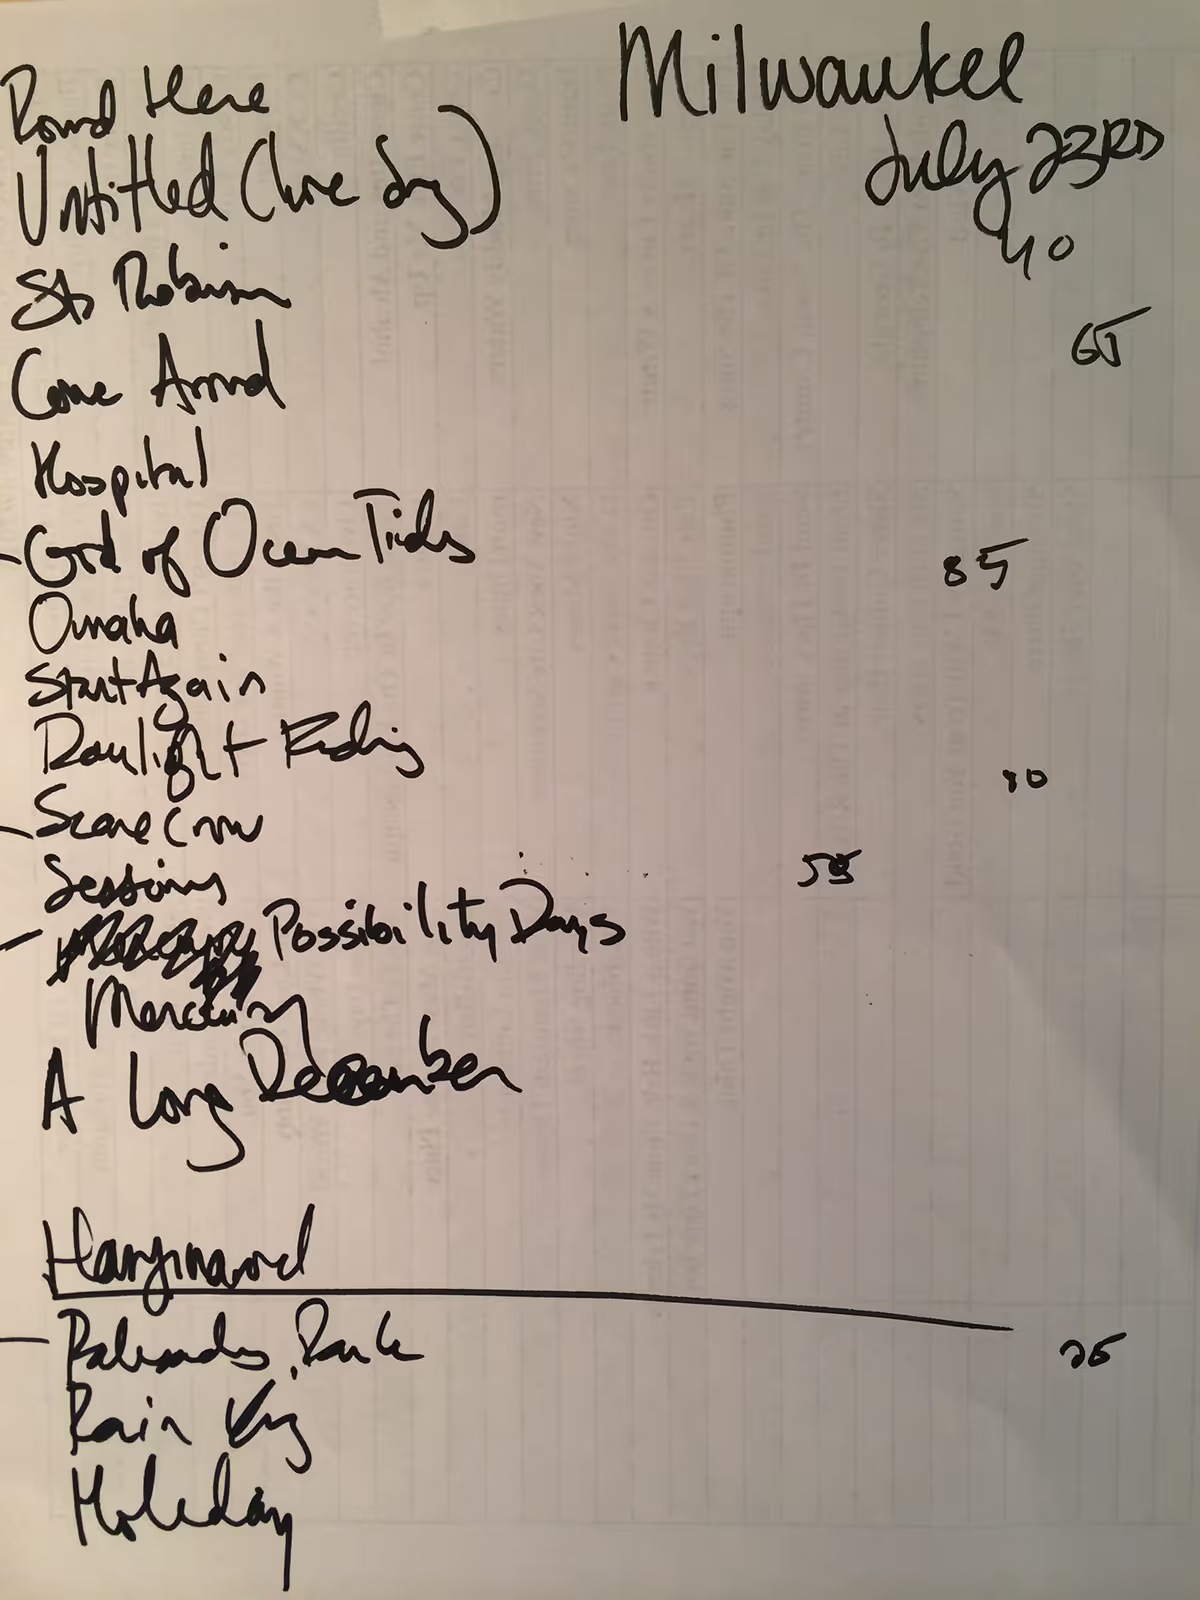 Round Here
Milwaukee
Untitled (Love Song)
July 23RD
40
St Robinson
65
Come Around
Hospital
God of Ocean Tides
85
Omaha
Start Again
Daylight Fading
10
Scarecrow
Sessions
55
Possibility Days
Mercury
A Long December
Hanginaround
Palisades Park
25
Rain King
Holiday